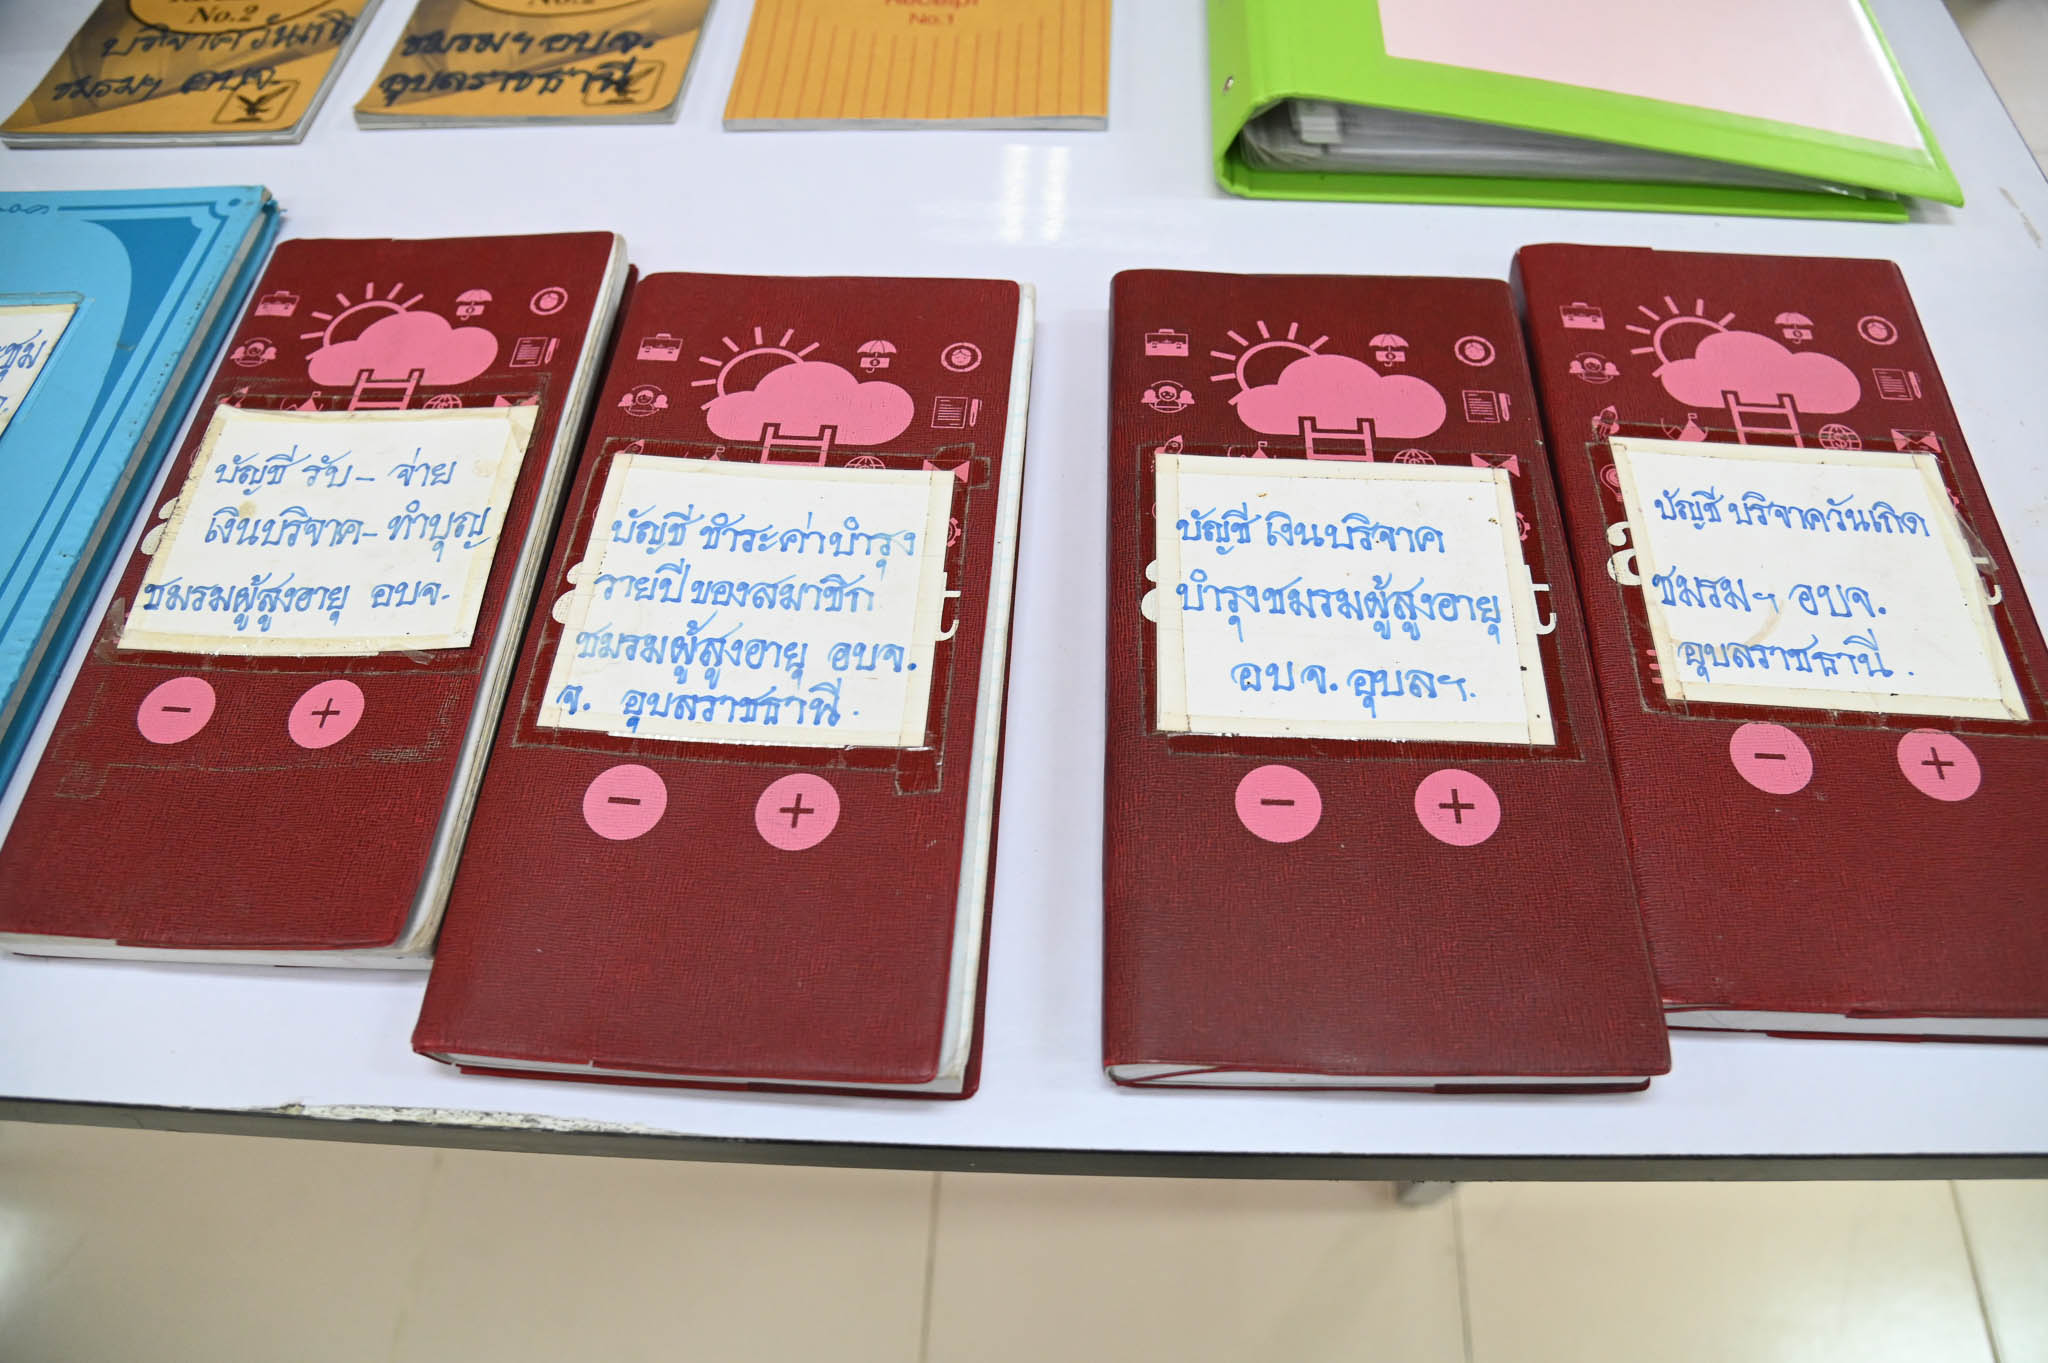 No.2
บริจาควันเกิ
ชมรมฯ อบจ.
No.2
ชมรมฯ อบจ.
อุบลราชธานี
Receipt
No.1
บัญชี รับ - จ่าย
เงินบริจาค - ทำบุญ
ชมรมผู้สูงอายุ อบจ.
บัญชี ชำระค่าบำรุง
รายปีของสมาชิก
ชมรมผู้สูงอายุ อบจ.
จ. อุบลราชธานี.
บัญชี เงินบริจาค
บำรุงชมรมผู้สูงอายุ
อบจ. อุบลฯ.
บัญชี บริจาควันเกิด
ชมรมฯ อบจ.
อุบลราชธานี.